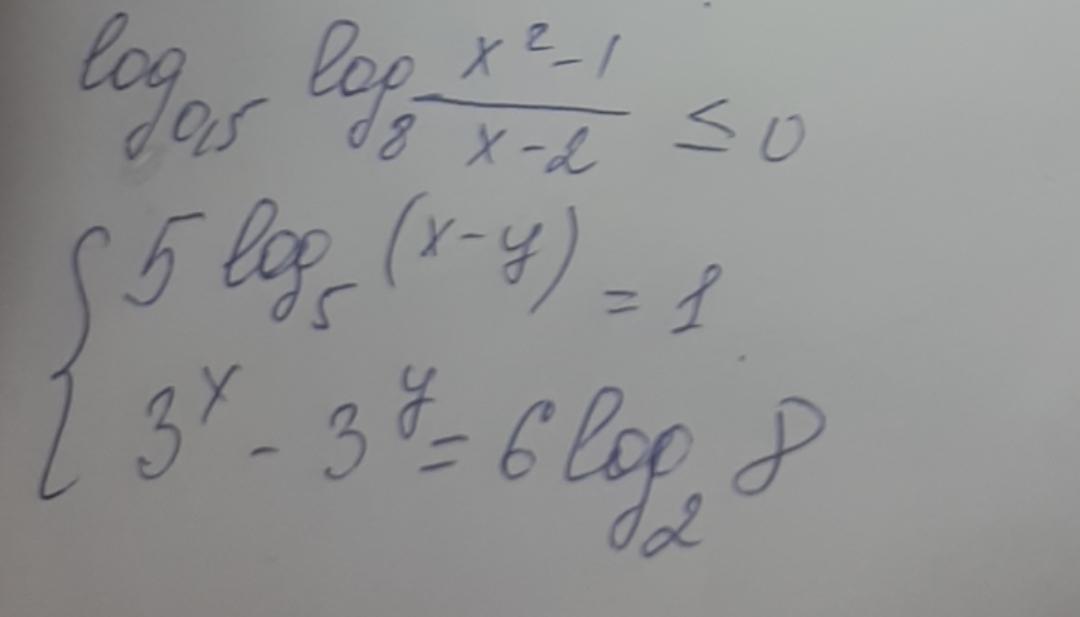 log₀,₅ log₈ (x²-1)/(x-2) ≤ 0
{ 5 log₅ (x-y) = 1
3ˣ - 3ʸ = 6 log₂ 8